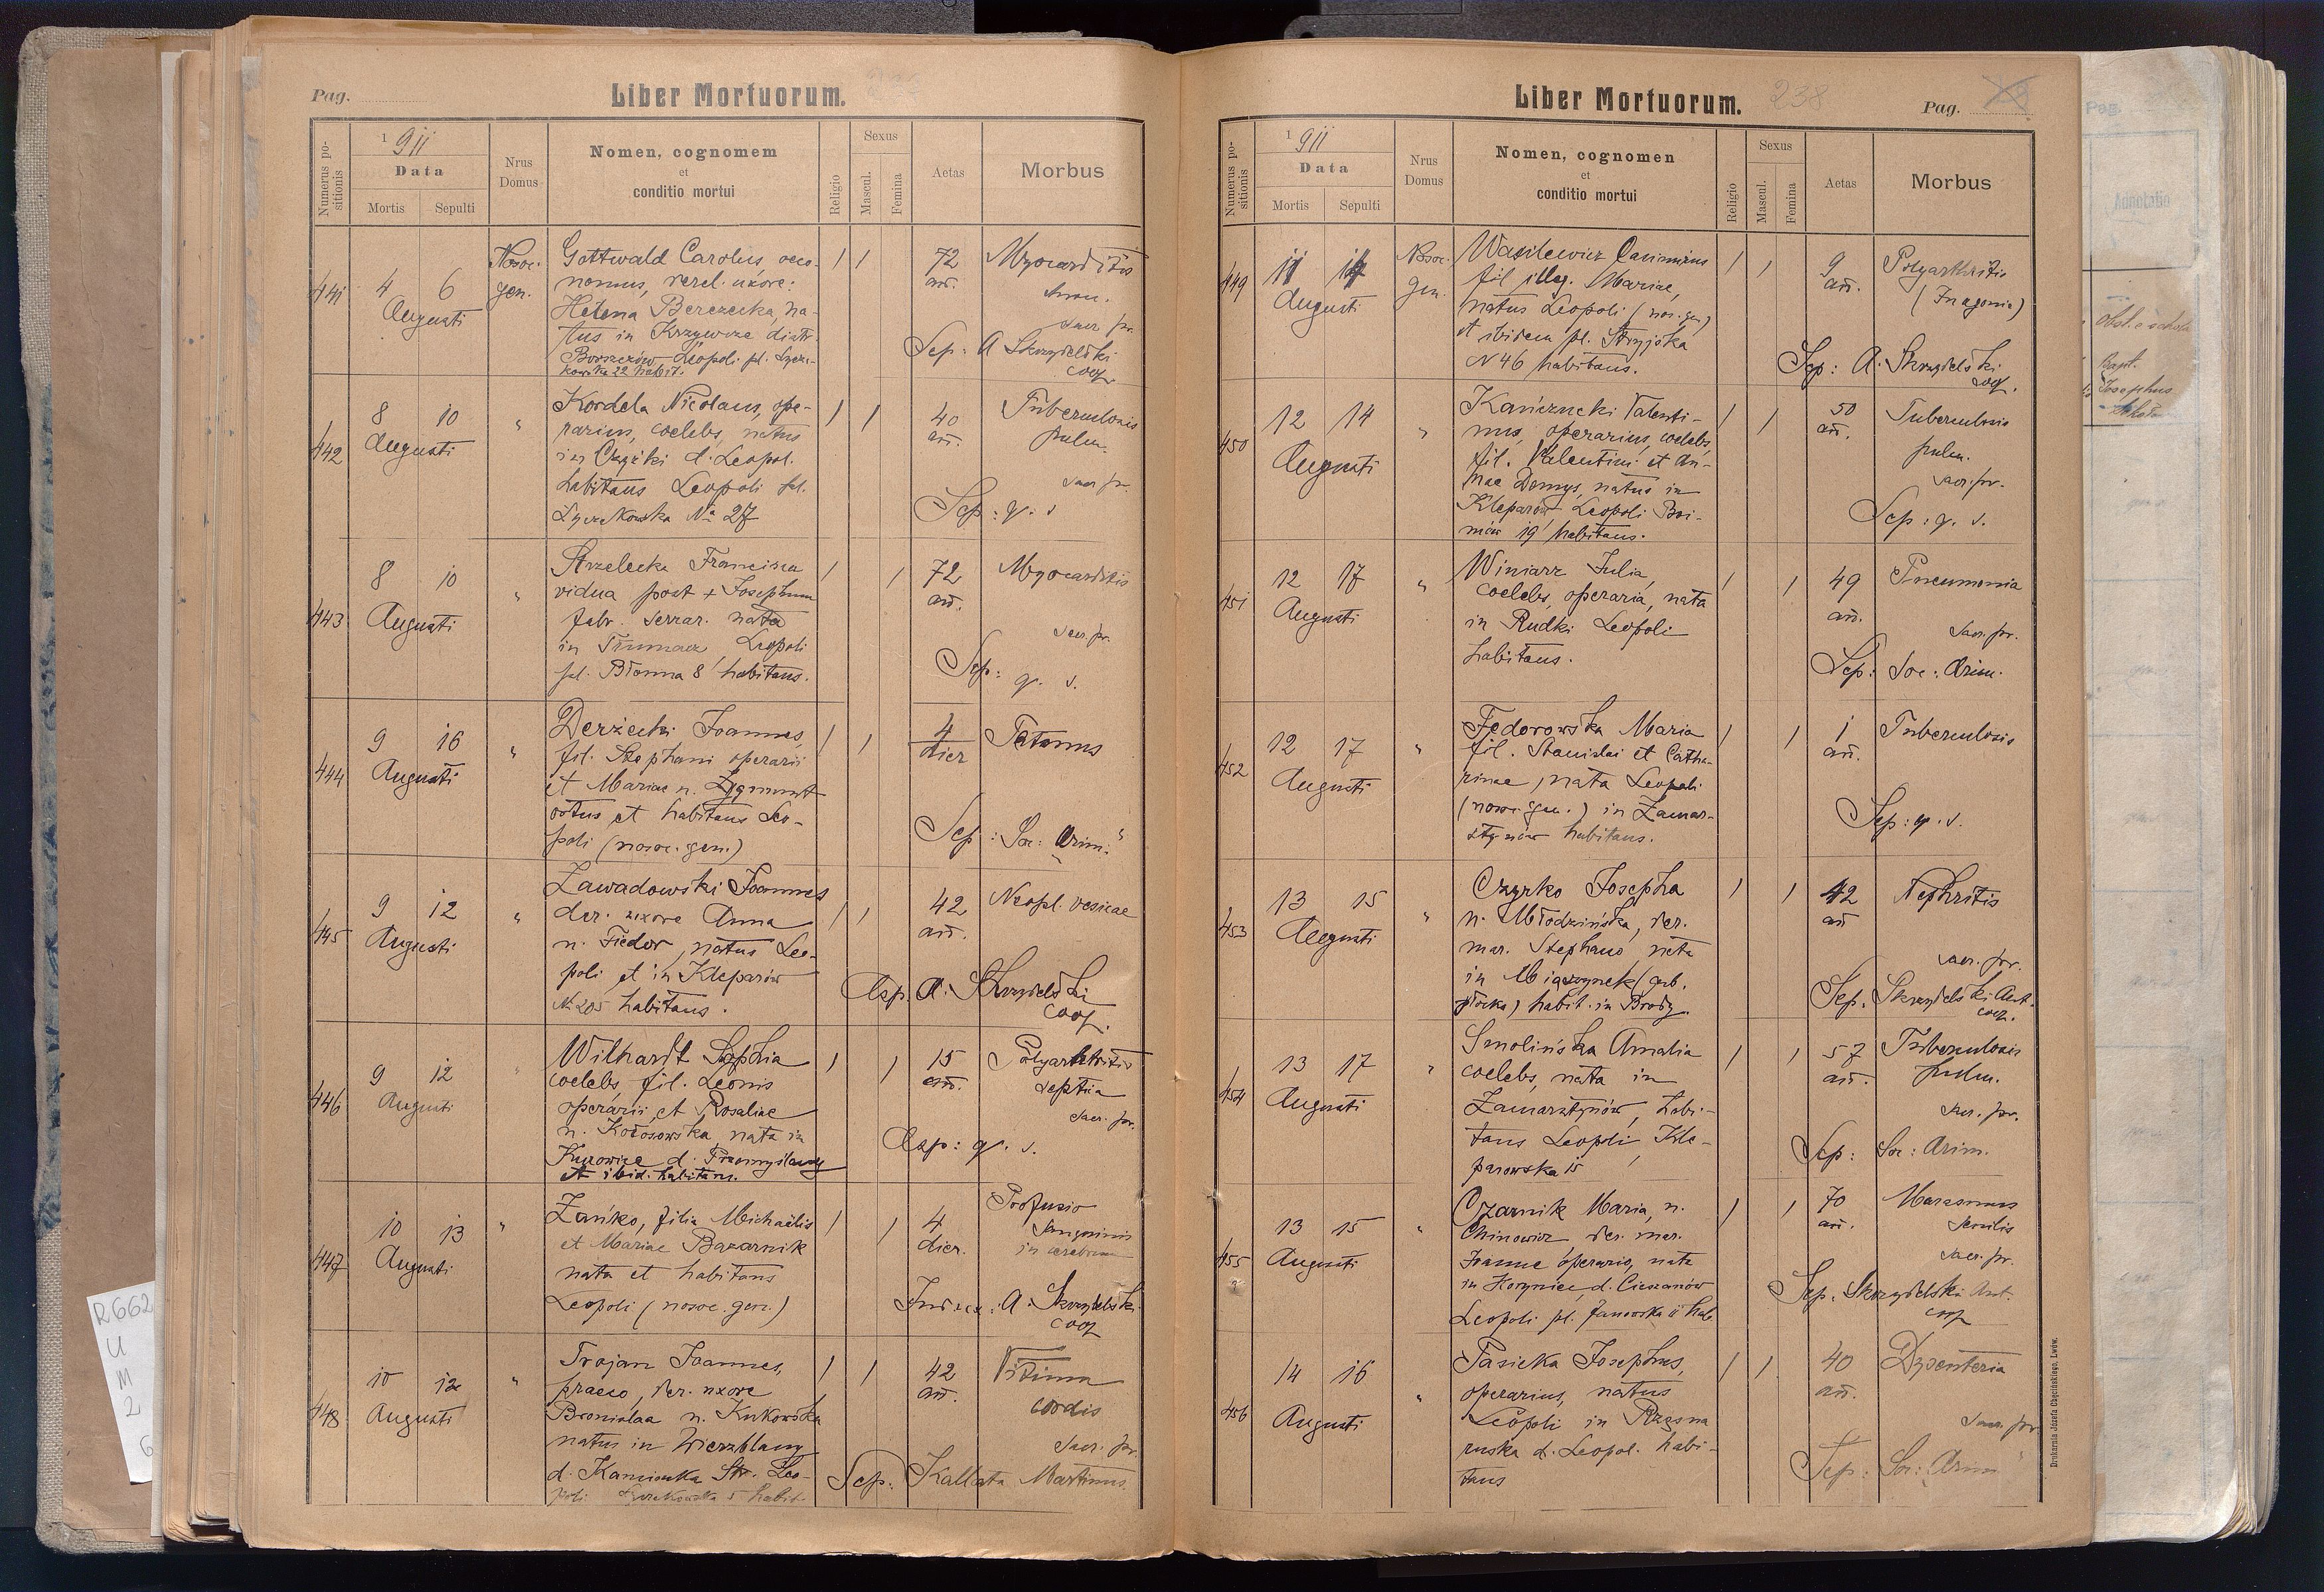 Pag.
Liber Mortuorum.
Numerus positionis
1911
Data
Mortis Sepulti
Nrus Domus
Nomen, cognomem
et
conditio mortui
Religio
Sexus
Mascul. Femina
Aetas
Morbus
441
4 6
Augusti
Nosoc.
gen.
Gottwald Carolus, oeco-
nomus, derel. uxore:
Helena Berezecka, na-
tus in Krzywcze distr.
Borszczów Leopoli pl. Łycza-
kowska 22 habit.
1 1
72
an.
Myocarditis
chron.
sacr. pr.
Sep: A Skrzydelski
coop.
442
8 10
Augusti
"
Kordela Nicolaus, ope-
rarius, coelebs, natus
in Czyżki d. Leopol.
habitans Leopoli pl.
Łyczakowska No 27
1 1
40
an.
Tuberculosis
pulm.
sacr. pr.
Sep: q. s
443
8 10
Augusti
"
Strzelecka Francisca
vidua post + Josephum
fabr. serrar. nata
in Tłumacz, Leopoli
pl. Błonna 8 habitans.
1 1
72
an.
Myocarditis
sacr. pr.
Sep: q. s.
444
9 16
Augusti
"
Derżecki Joannes,
fil. Stephani operarii
et Mariae n. Zygmunt
ortus et habitans Leo-
poli (nosoc. gen.)
1 1
4
dier
Tetanus
Sep: Soc: Arim."
445
9 12
Augusti
"
Zawadowski Joannes
der. uxore Anna
n. Fiedor, natus Leo-
poli et in Kleparów
No 205 habitans.
1 1
42
an.
Neopl. vesicae
Asp. A. Skrzydelski
coop.
446
9 12
Augusti
"
Wilhardt Sophia
coelebs, fil. Leonis
operarii et Rosaliae
n. Kołosowska, nata in
Kurowice d. Przemyślany
et ibid. habitans.
1 1
15
an.
Polyarthritis
septica
sacr. pr.
Asp: q. s.
447
10 13
Augusti
"
Zańko, filia Michaëlis
et Mariae Bazarnik
nata et habitans
Leopoli (nosoc. gen.)
1 1
4
dier.
Profusio
sanguinis
in cerebrum
A. Skrzydelski
coop
448
10 12
Augusti
"
Trojan Joannes,
praeco, der. uxore
Bronislaa n. Kukowska
natus in Wierzblany
d. Kamionka Str. Leo-
poli Łyczakowska 5 habit.
1 1
42
an.
Vitium
cordis
sacr. pr.
Sep: Kallata Martinus
Liber Mortuorum. 238
Pag.
Numerus positionis
1911
Data
Mortis Sepulti
Nrus Domus
Nomen, cognomen
et
conditio mortui
Religio
Sexus
Mascul. Femina
Aetas
Morbus
449
11 14
Augusti
Nosoc.
gen.
Wasilewicz Casimirus
fil illeg. Mariae,
natus Leopoli (nos. gen)
et ibidem pl. Stryjska
N 46 habitans.
1 1
9
an.
Polyarthritis
(In agonia)
Sep: A. Skrzydelski
coop.
450
12 14
Augusti
"
Kańczucki Valenti-
nus, operarius, coelebs,
fil. Valentini et An-
nae Domys, natus in
Kleparów Leopoli Boi-
mów 19 habitans.
1 1
50
an.
Tuberculosis
pulm.
sacr. pr.
Sep: q. s.
451
12 17
Augusti
"
Winiarz Julia,
coelebs, operaria, nata
in Rudki Leopoli
habitans.
1 1
49
an.
Pneumonia
sacr. pr.
Sep: Soc: Arim.
452
12 17
Augusti
"
Fedorowska Maria
fil. Stanislai et Catha-
rinae, nata Leopoli
(nosoc. gen.) in Zamar-
stynów habitans.
1 1
1
an.
Tuberculosis
Sep: q. s.
453
13 15
Augusti
"
Czyrko Josepha
n. Młodzińska, der.
mar. Stephano, nata
in Miączynek (gub.
płocka) habit. in Brody.
1 1
42
an
Nephritis
sacr. pr.
Sep. Skrzydelski Ant.
coop.
454
13 17
Augusti
"
Smolińska Amalia
coelebs, nata in
Zamarstynów, habi-
tans Leopoli, Kle-
parowska 15
1 1
57
an.
Tuberculosis
pulm.
sacr. pr.
Sep: Soc: Arim.
455
13 15
Augusti
"
Czarnik Maria, n.
Chinowicz der. mar.
Joanne operario, nata
in Horyniec, d. Cieszanów
Leopoli pl. Janowska 11 hab.
1 1
70
an.
Marasmus
senilis
sacr. pr.
Sep. Skrzydelski Ant.
coop
456
14 16
Augusti
"
Pasieka Josephus,
operarius, natus
Leopoli in Rzęsna
ruska d. Leopol. habi-
tans
1 1
40
an.
Dysenteria
sacr. pr
Sep: Soc: Arim"
Drukarnia Józefa Chęcińskiego, Lwów.
Pag.
Adnotatio
Bapt.
Josephus
R662
U
M
2
6